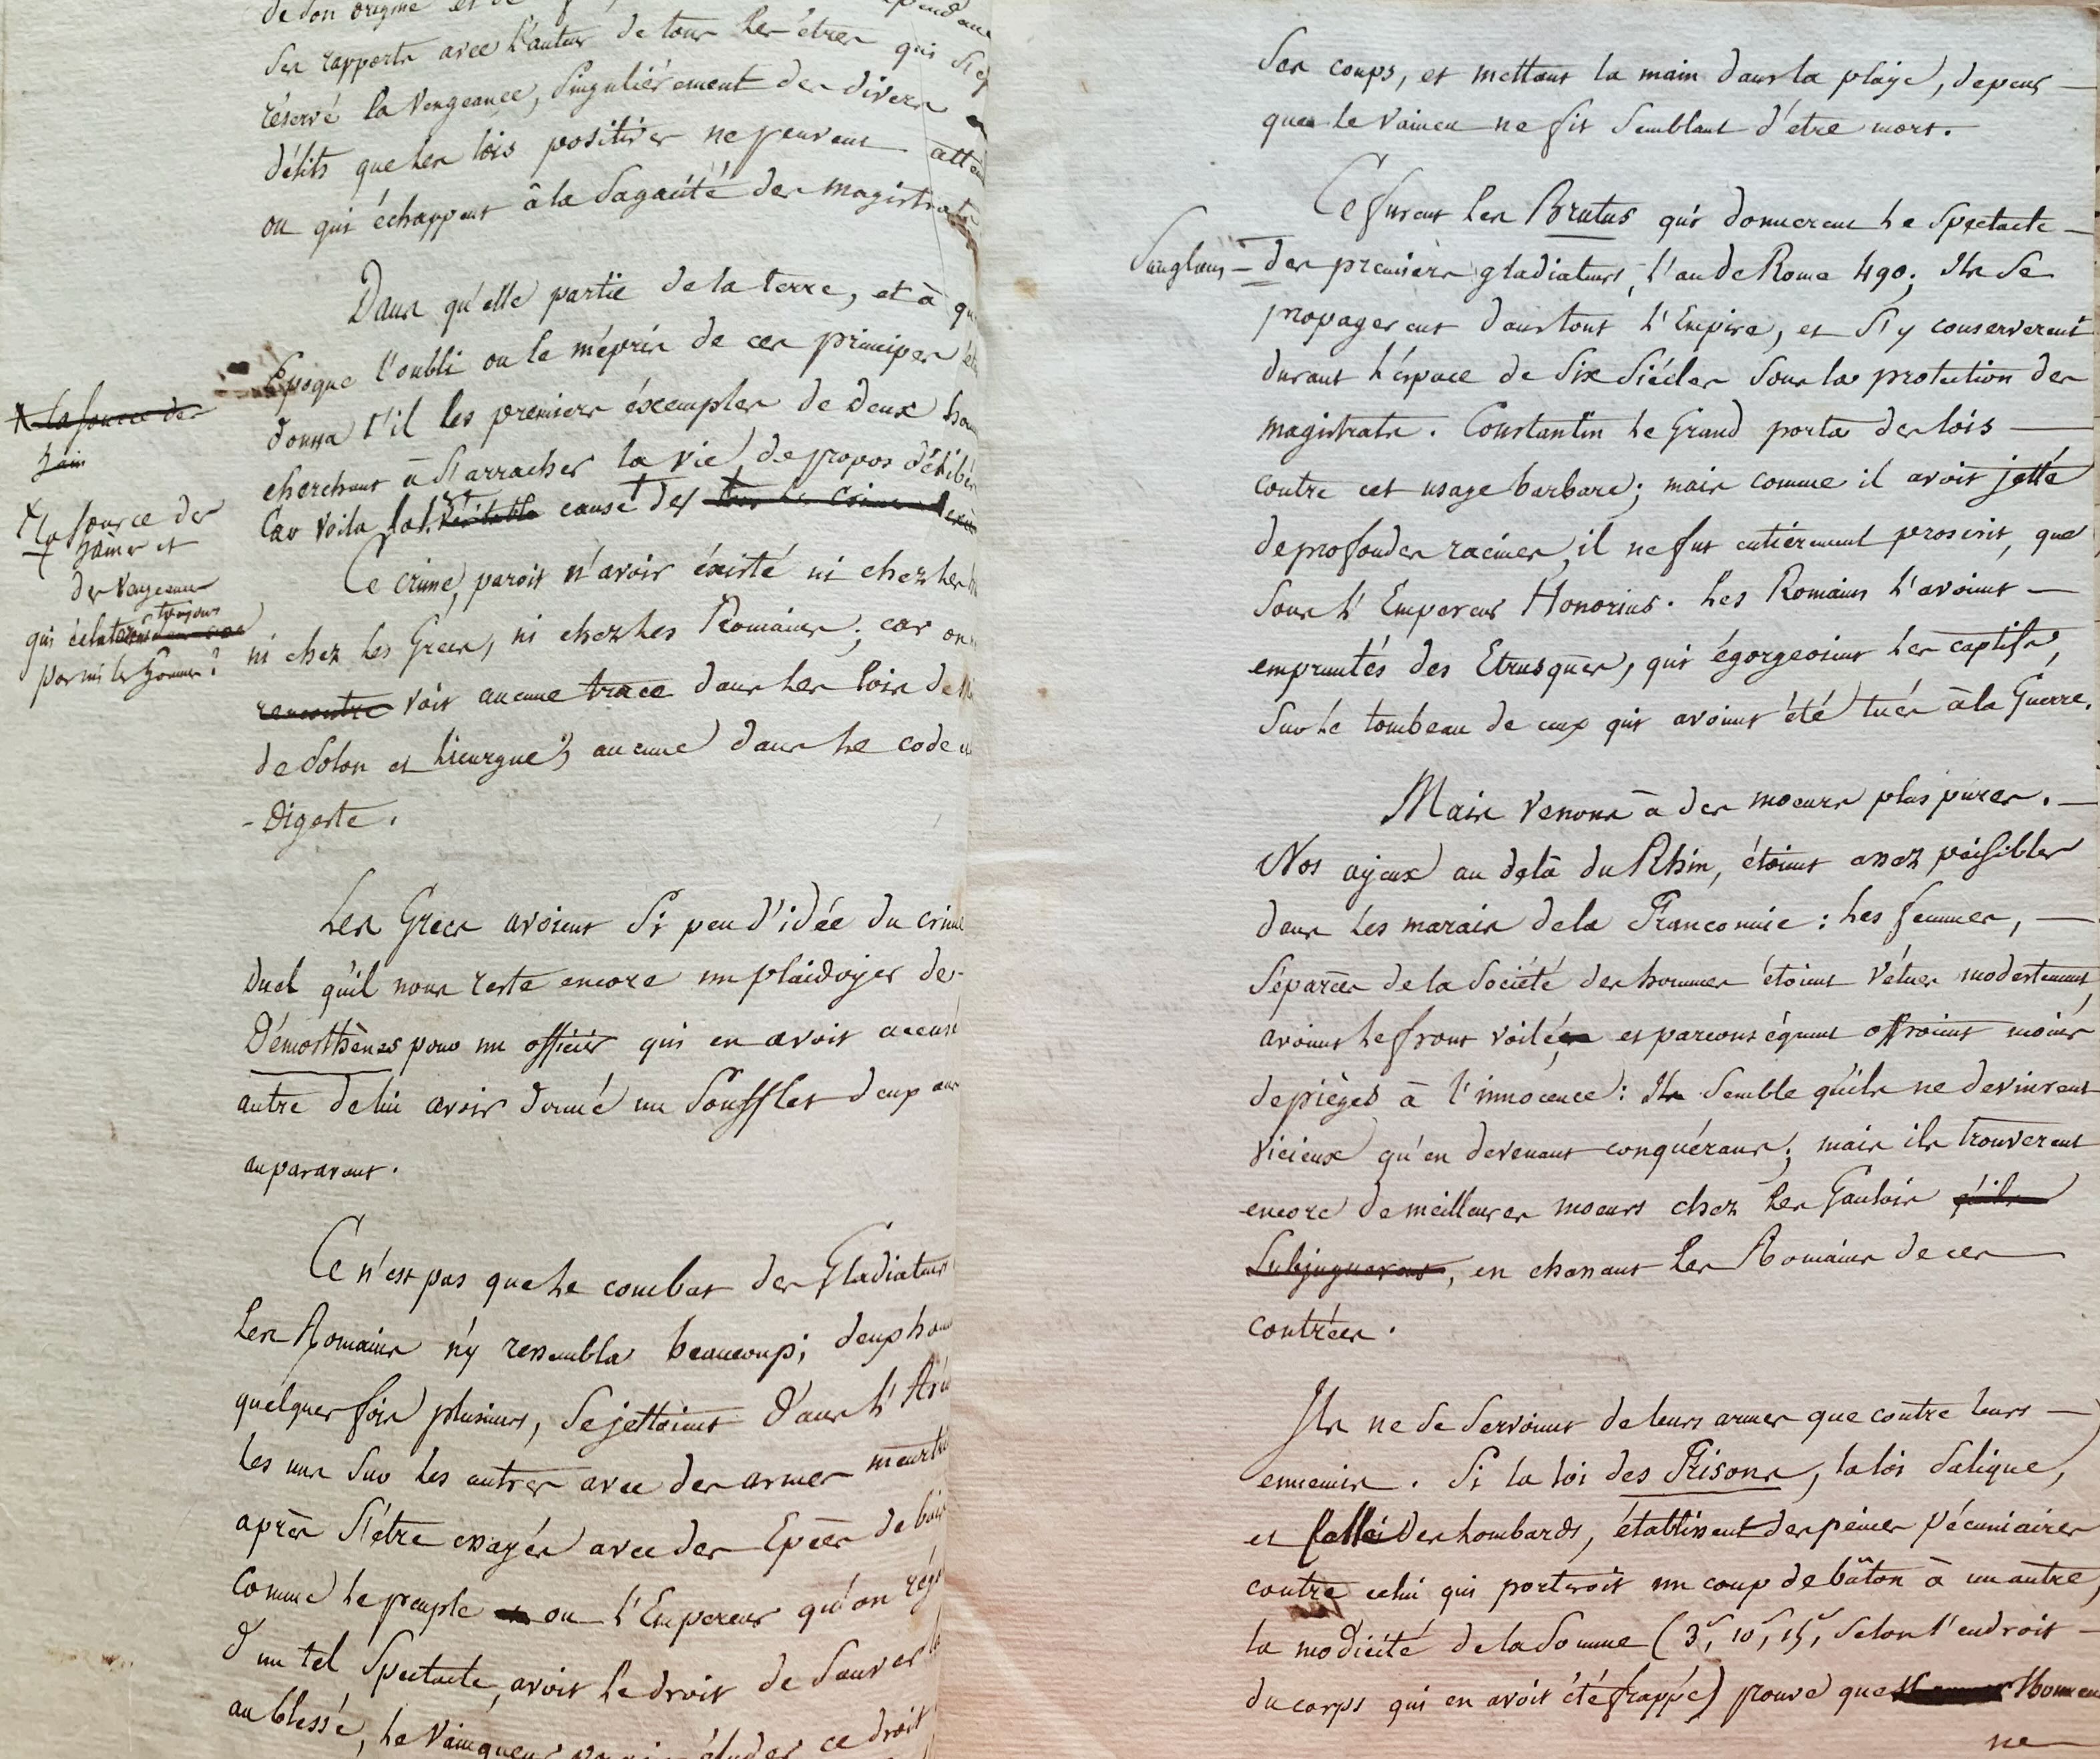 de son origine et de
ses rapports avec l'auteur de tous les êtres qui s'est
réservé la vengeance, singuliérement des divers
délits que les lois positives ne peuvent
ou qui échappent à la sagacité des magistrats
Dans qu'elle partie de la terre, et à
Epoque l'oubli ou le mépris de ces principes
donna t'il les premiers éxemples de deux
cherchant à s'arracher la vie de propos
Car voila la véritable cause des
* la source des
hain
X la source des
haines et
des vengeances
qui éclatent toujours
parmi les hommes?
Ce crime, paroit n'avoir éxisté ni chez les
ni chez les Grecs, ni chez les Romains; car on
rencontre voit aucune trace dans les loix de
de Solon et Licurgue, aucune dans le code
- Digeste.
Les Grecs avoient si peu d'idée du crime
Duel qu'il nous reste encore un plaidoyer de-
Démosthènes pour un officier qui en avoit accusé
autre de lui avoir donné un soufflet deux ans
auparavant.
Ce n'est pas que le combat des Gladiateurs
les Romains n'y ressembla beaucoup; deux
quelques fois plusieurs, se jettoient dans l'
les uns sur les autres avec des armes
après s'être essayés avec des Epées de bois
comme le peuple ou l'Empereur qu'on
d'un tel spectacle, avoit le droit de sauver la
au blessé, le vainqueur éluder ce droit
ses coups, et mettant la main dans la playe, de peur
que le vaincu ne fit semblant d'etre mort.
Ce furent les Brutus qui donnerent le spectacle
sanglant - des premiers gladiateurs, l'an de Rome 490; Ils se
propagerent dans tout l'Empire, et s'y conserverent
durant l'éspace de six siécles sous la protection des
magistrats. Constantin le Grand porta des lois
contre cet usage barbare; mais comme il avoit jetté
de profondes racines, il ne fut entiérement proscrit, que
sous l'Empereur Honorius. Les Romains l'avoient
empruntés des Etrusques, qui égorgeoient les captifs,
sur le tombeau de ceux qui avoient été tués à la Guerre.
Mais venons à des moeurs plus pures.
Nos ayeux au delà du Rhin, étoient assez paisibles
dans les marais de la Franconnie: les femmes,
séparées de la société des hommes étoient vétues modestement,
avoient le front voilé, et par conséquent offroient moins
de pièges à l'innocence: Il semble qu'ils ne devinrent
vicieux qu'en devenant conquérans; mais ils trouverent
encore de meilleures moeurs chez les Gaulois qu'ils
subjuguerent, en chassant les Romains de ces
contrées.
Ils ne se servoient de leurs armes que contre leurs
ennemis. Si la loi des Frisons, la loi salique,
et celle des Lombards, établissent des peines pécuniaires
contre celui qui porteroit un coup de bâton à un autre,
la modicité de la somme (3s, 10s, 15s, selon l'endroit
du corps qui en avoit été frappé) prouve que
ne